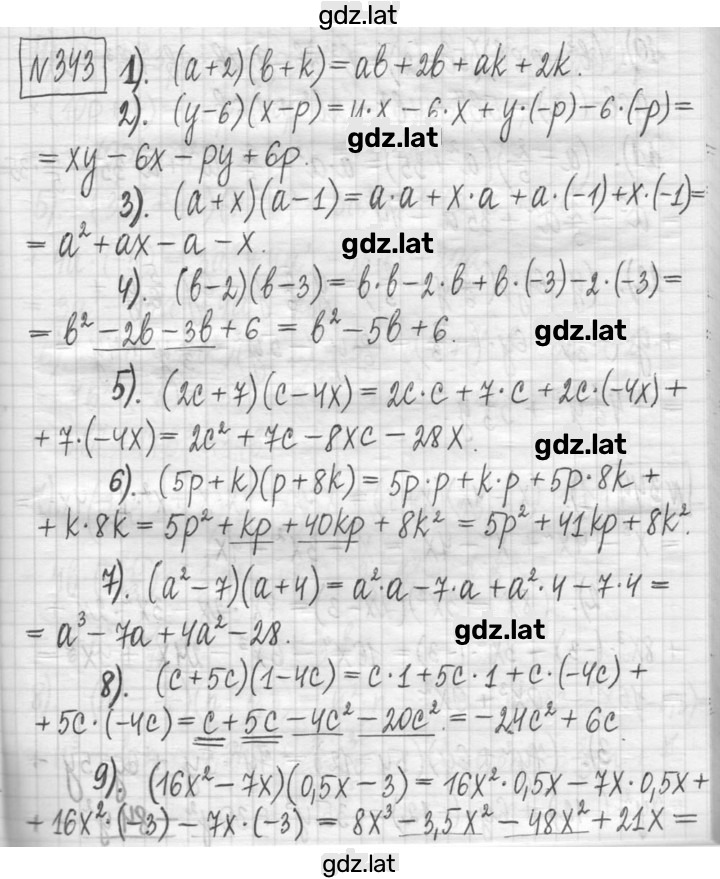 gdz.lat
№343 1). (a+2)(в+k)=aв+2в+ak+2k.
2). (y-6)(x-p)=y·x-6·x+y·(-p)-6·(-p)=
gdz.lat
=xy-6x-py+6p.
3). (a+x)(a-1)=a·a+x·a+a·(-1)+x·(-1)=
=a²+ax-a-x.
gdz.lat
4). (в-2)(в-3)=в·в-2·в+в·(-3)-2·(-3)=
=в²-2в-3в+6=в²-5в+6.
gdz.lat
5). (2c+7)(c-4x)=2c·c+7·c+2c·(-4x)+
+7·(-4x)=2c²+7c-8xc-28x.
gdz.lat
6). (5p+k)(p+8k)=5p·p+k·p+5p·8k+
+k·8k=5p²+kp+40kp+8k²=5p²+41kp+8k².
7). (a²-7)(a+4)=a²·a-7·a+a²·4-7·4=
=a³-7a+4a²-28.
gdz.lat
8). (c+5c)(1-4c)=c·1+5c·1+c·(-4c)+
+5c·(-4c)=c+5c-4c²-20c².=-24c²+6c
9). (16x²-7x)(0,5x-3)=16x²·0,5x-7x·0,5x+
+16x²·(-3)-7x·(-3)=8x³-3,5x²-48x²+21x=
gdz.lat